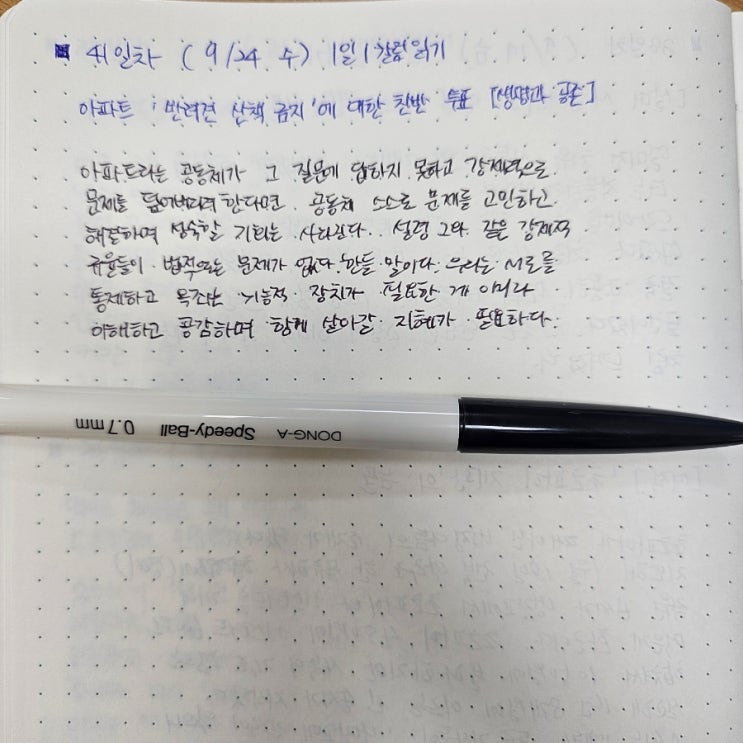 41일차 ( 9/24 수 ) 1일 1칼럼 읽기
아파트 '반려견 산책 금지'에 대한 찬반 투표 [생명과 공존]
아파트라는 공동체가 그 질문에 답하지 못하고 강제력으로
문제를 덮어버리려 한다면, 공동체 스스로 문제를 고민하고
해결하며 성숙할 기회는 사라진다. 설령 그와 같은 강제적
규율들이 법적으로는 문제가 없다 한들 말이다. 우리는 서로를
통제하고 옥죄는 기능적 장치가 필요한 게 아니라
이해하고 공감하며 함께 살아갈 지혜가 필요하다.
DONG-A Speedy-Ball 0.7mm